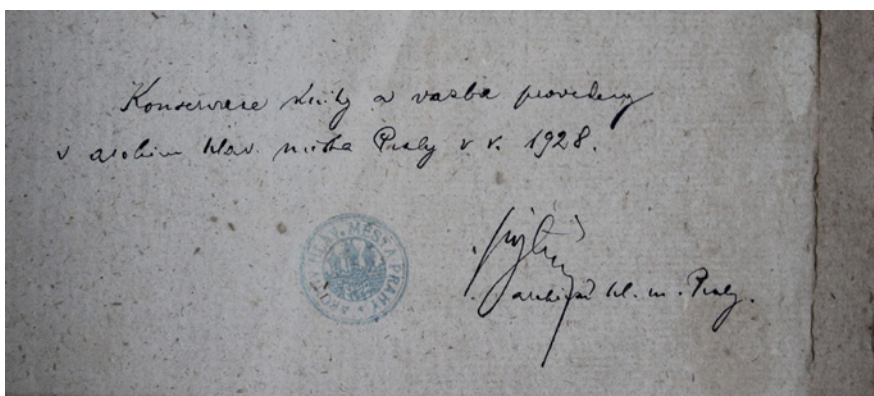 Konservace knihy a vazba provedeny
v archivu hlav. města Prahy v r. 1928.
ARCHIV HLAV. MĚSTA PRAHY
archivář hl. m. Prahy.